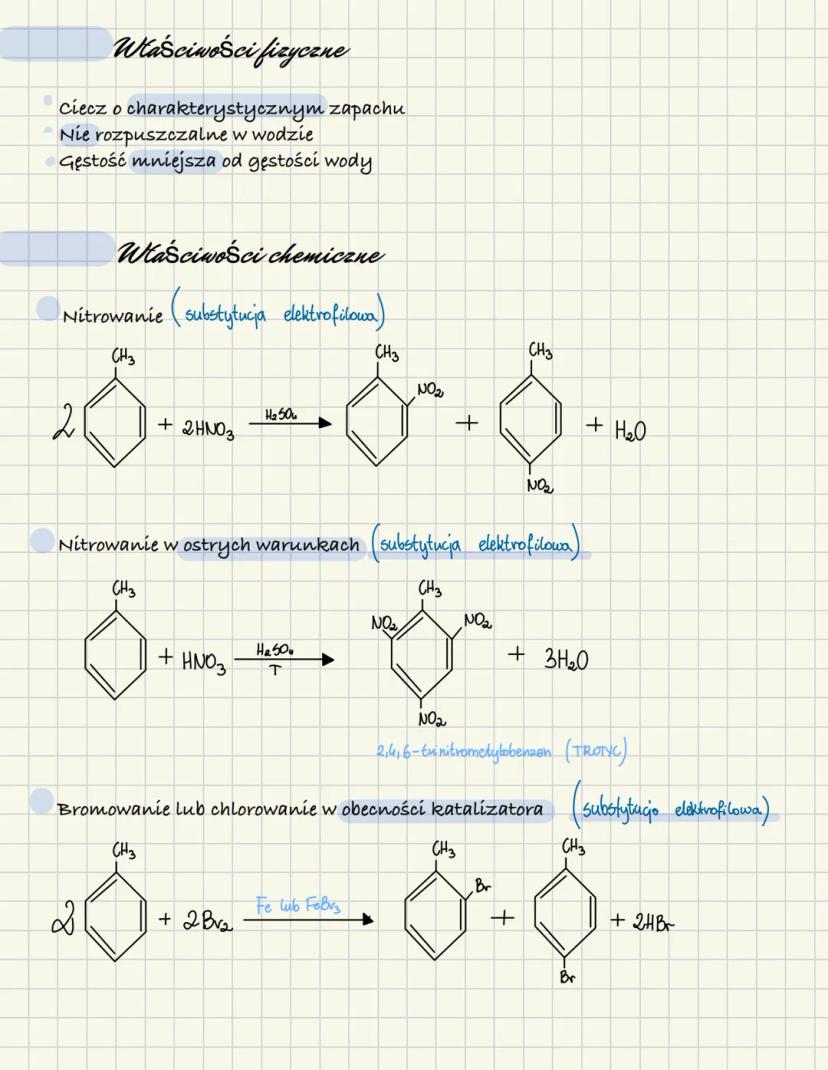 Właściwości fizyczne
Ciecz o charakterystycznym zapachu
Nie rozpuszczalne w wodzie
Gęstość mniejsza od gęstości wody
Właściwości chemiczne
Nitrowanie (substytucja elektrofilowa)
CH3 CH3 CH3
2 + 2HNO3 H2SO4 NO2 + + H2O
NO2
Nitrowanie w ostrych warunkach (substytucja elektrofilowa)
CH3 CH3
NO2 NO2
+ HNO3 H2SO4 T + 3H2O
NO2
2,4,6-trinitrometylobenzen (TROTYL)
Bromowanie lub chlorowanie w obecności katalizatora (substytucja elektrofilowa)
CH3 CH3 CH3
Br
2 + 2Br2 Fe lub FeBr3 + + 2HBr
Br